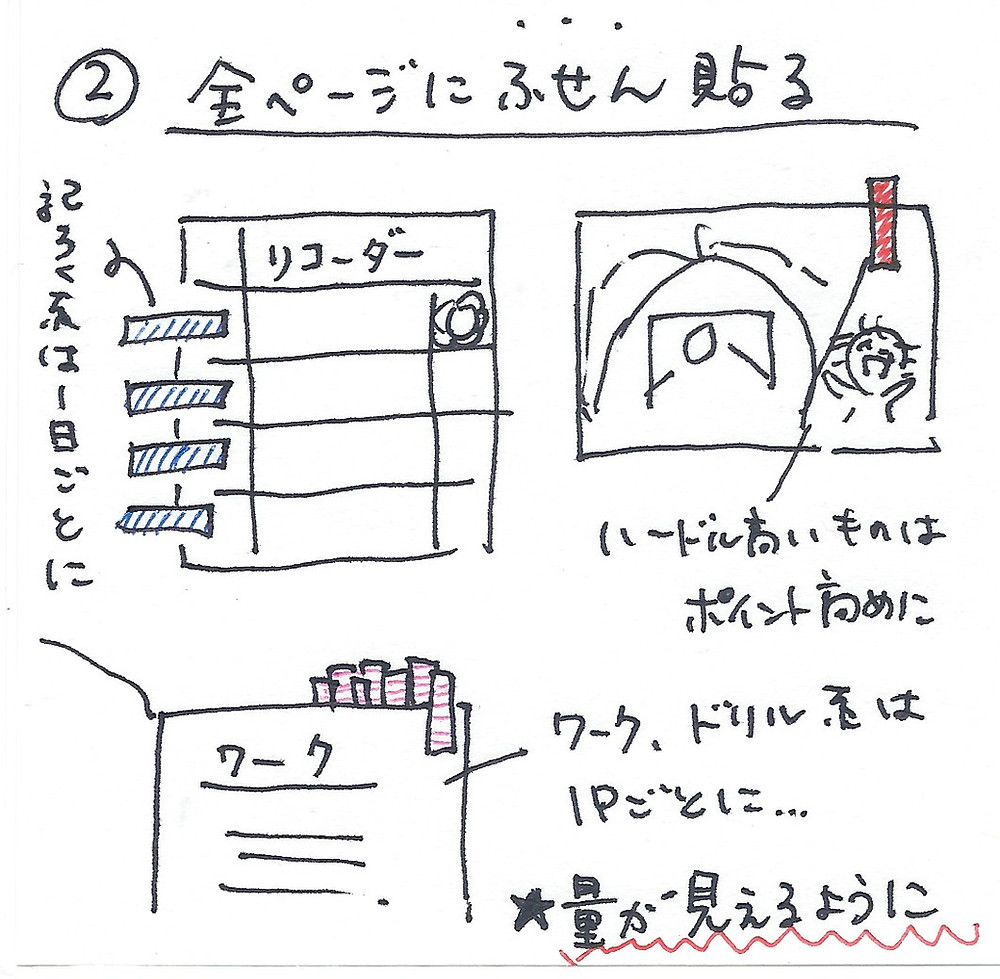 ② 全ページにふせん貼る
記ろく系は1日ごとに
リコーダー
ハードル高いものは
ポイント高めに
ワーク
ワーク、ドリル系は
1Pごとに...
★量が見えるように